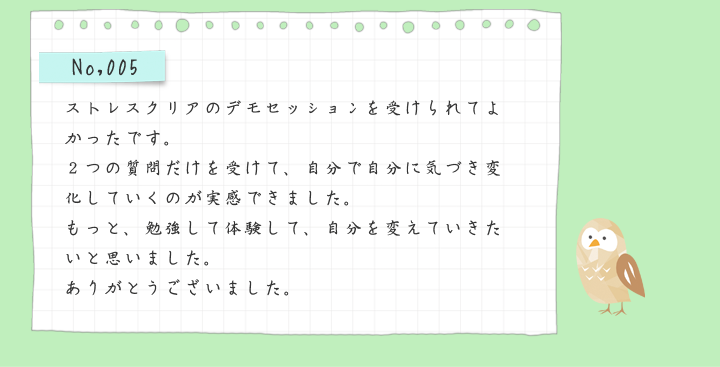 No,005
ストレスクリアのデモセッションを受けられてよ
かったです。
２つの質問だけを受けて、自分で自分に気づき変
化していくのが実感できました。
もっと、勉強して体験して、自分を変えていきた
いと思いました。
ありがとうございました。